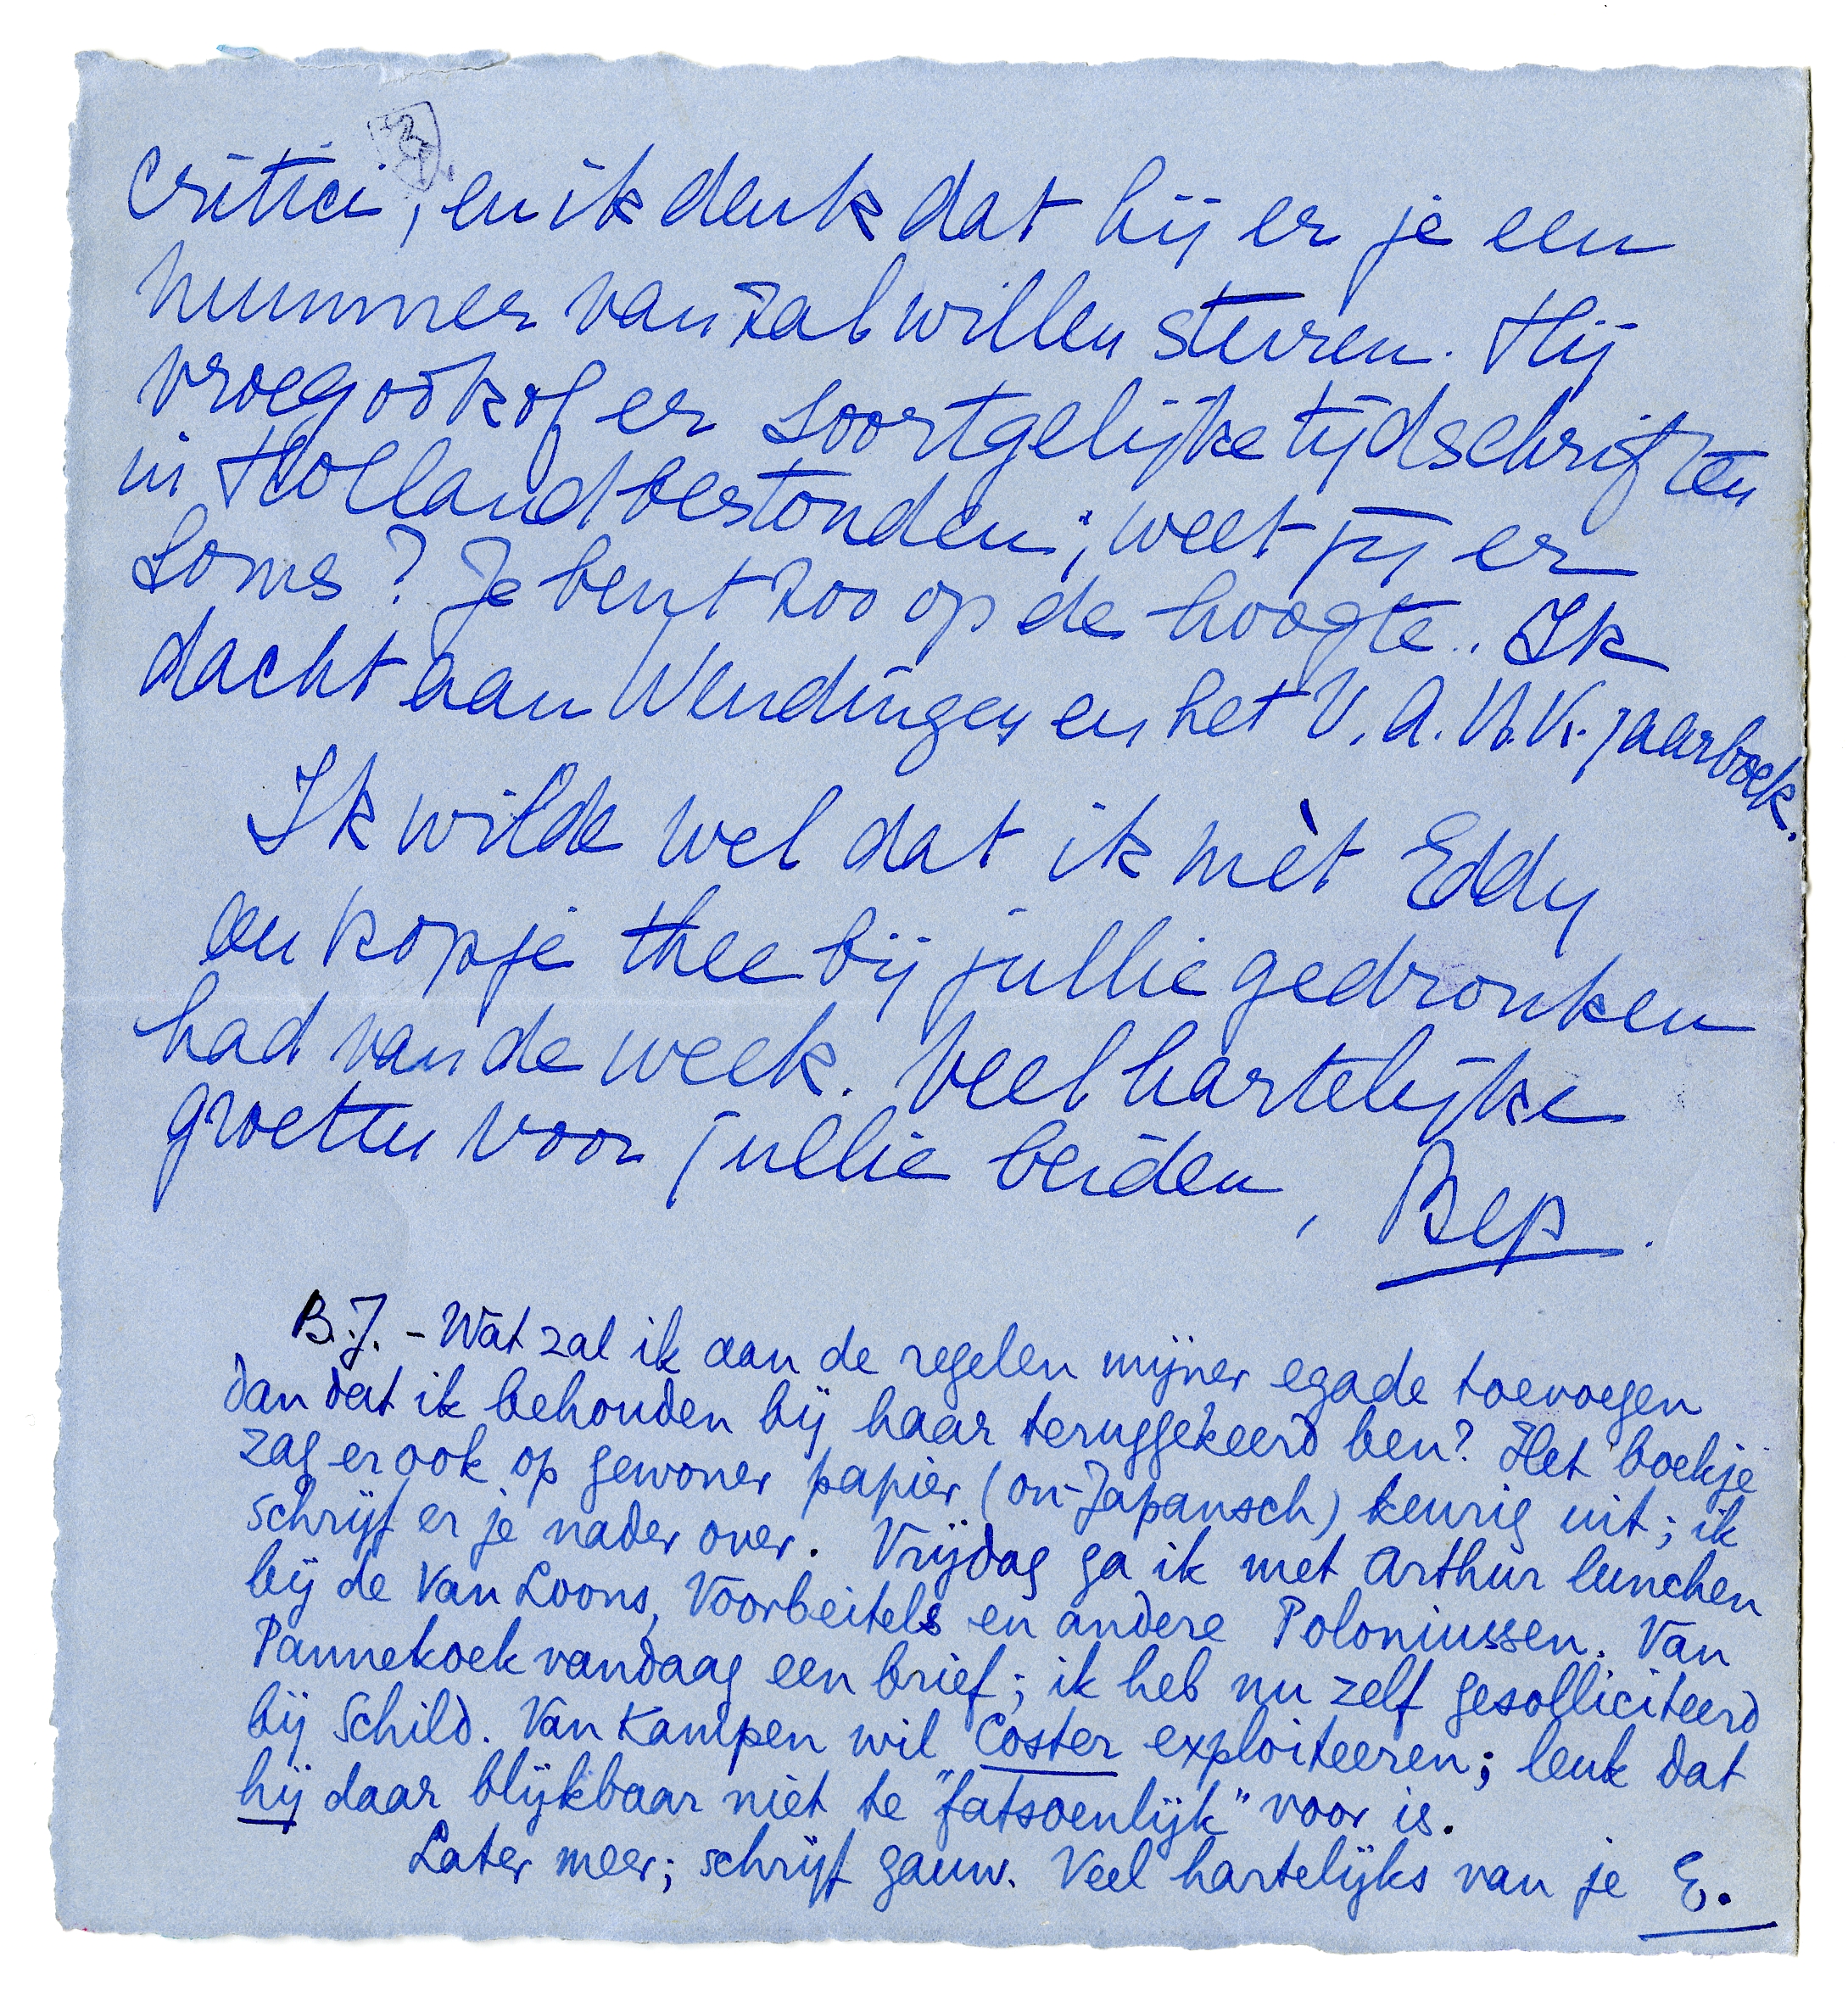 critici, en ik denk dat hij er je een
nummer van zal willen sturen. Hij
vroeg ook of er soortgelijke tijdschriften
in Holland bestonden; weet jij er
soms? Je bent zoo op de hoogte. Ik
dacht aan Wendingen en het V.A.N.K. jaarboek.
Ik wilde wel dat ik mèt Eddy
een kopje thee bij jullie gedronken
had van de week. Veel hartelijke
groeten voor jullie beiden, Bep.
B.J. - Wat zal ik aan de regelen mijner egade toevoegen
dan dat ik behouden bij haar teruggekeerd ben? Het boekje
zag er ook op gewoner papier (on-Japansch) keurig uit; ik
schrijf er je nader over. Vrijdag ga ik met Arthur lunchen
bij de Van Loons, Voorbeitels en andere Poloniussen. Van
Pannekoek vandaag een brief; ik heb nu zelf gesolliciteerd
bij Schild. Van Kampen wil Coster exploiteeren; leuk dat
hij daar blijkbaar niet te "fatsoenlijk" voor is.
Later meer; schrijf gauw. Veel hartelijks van je E.